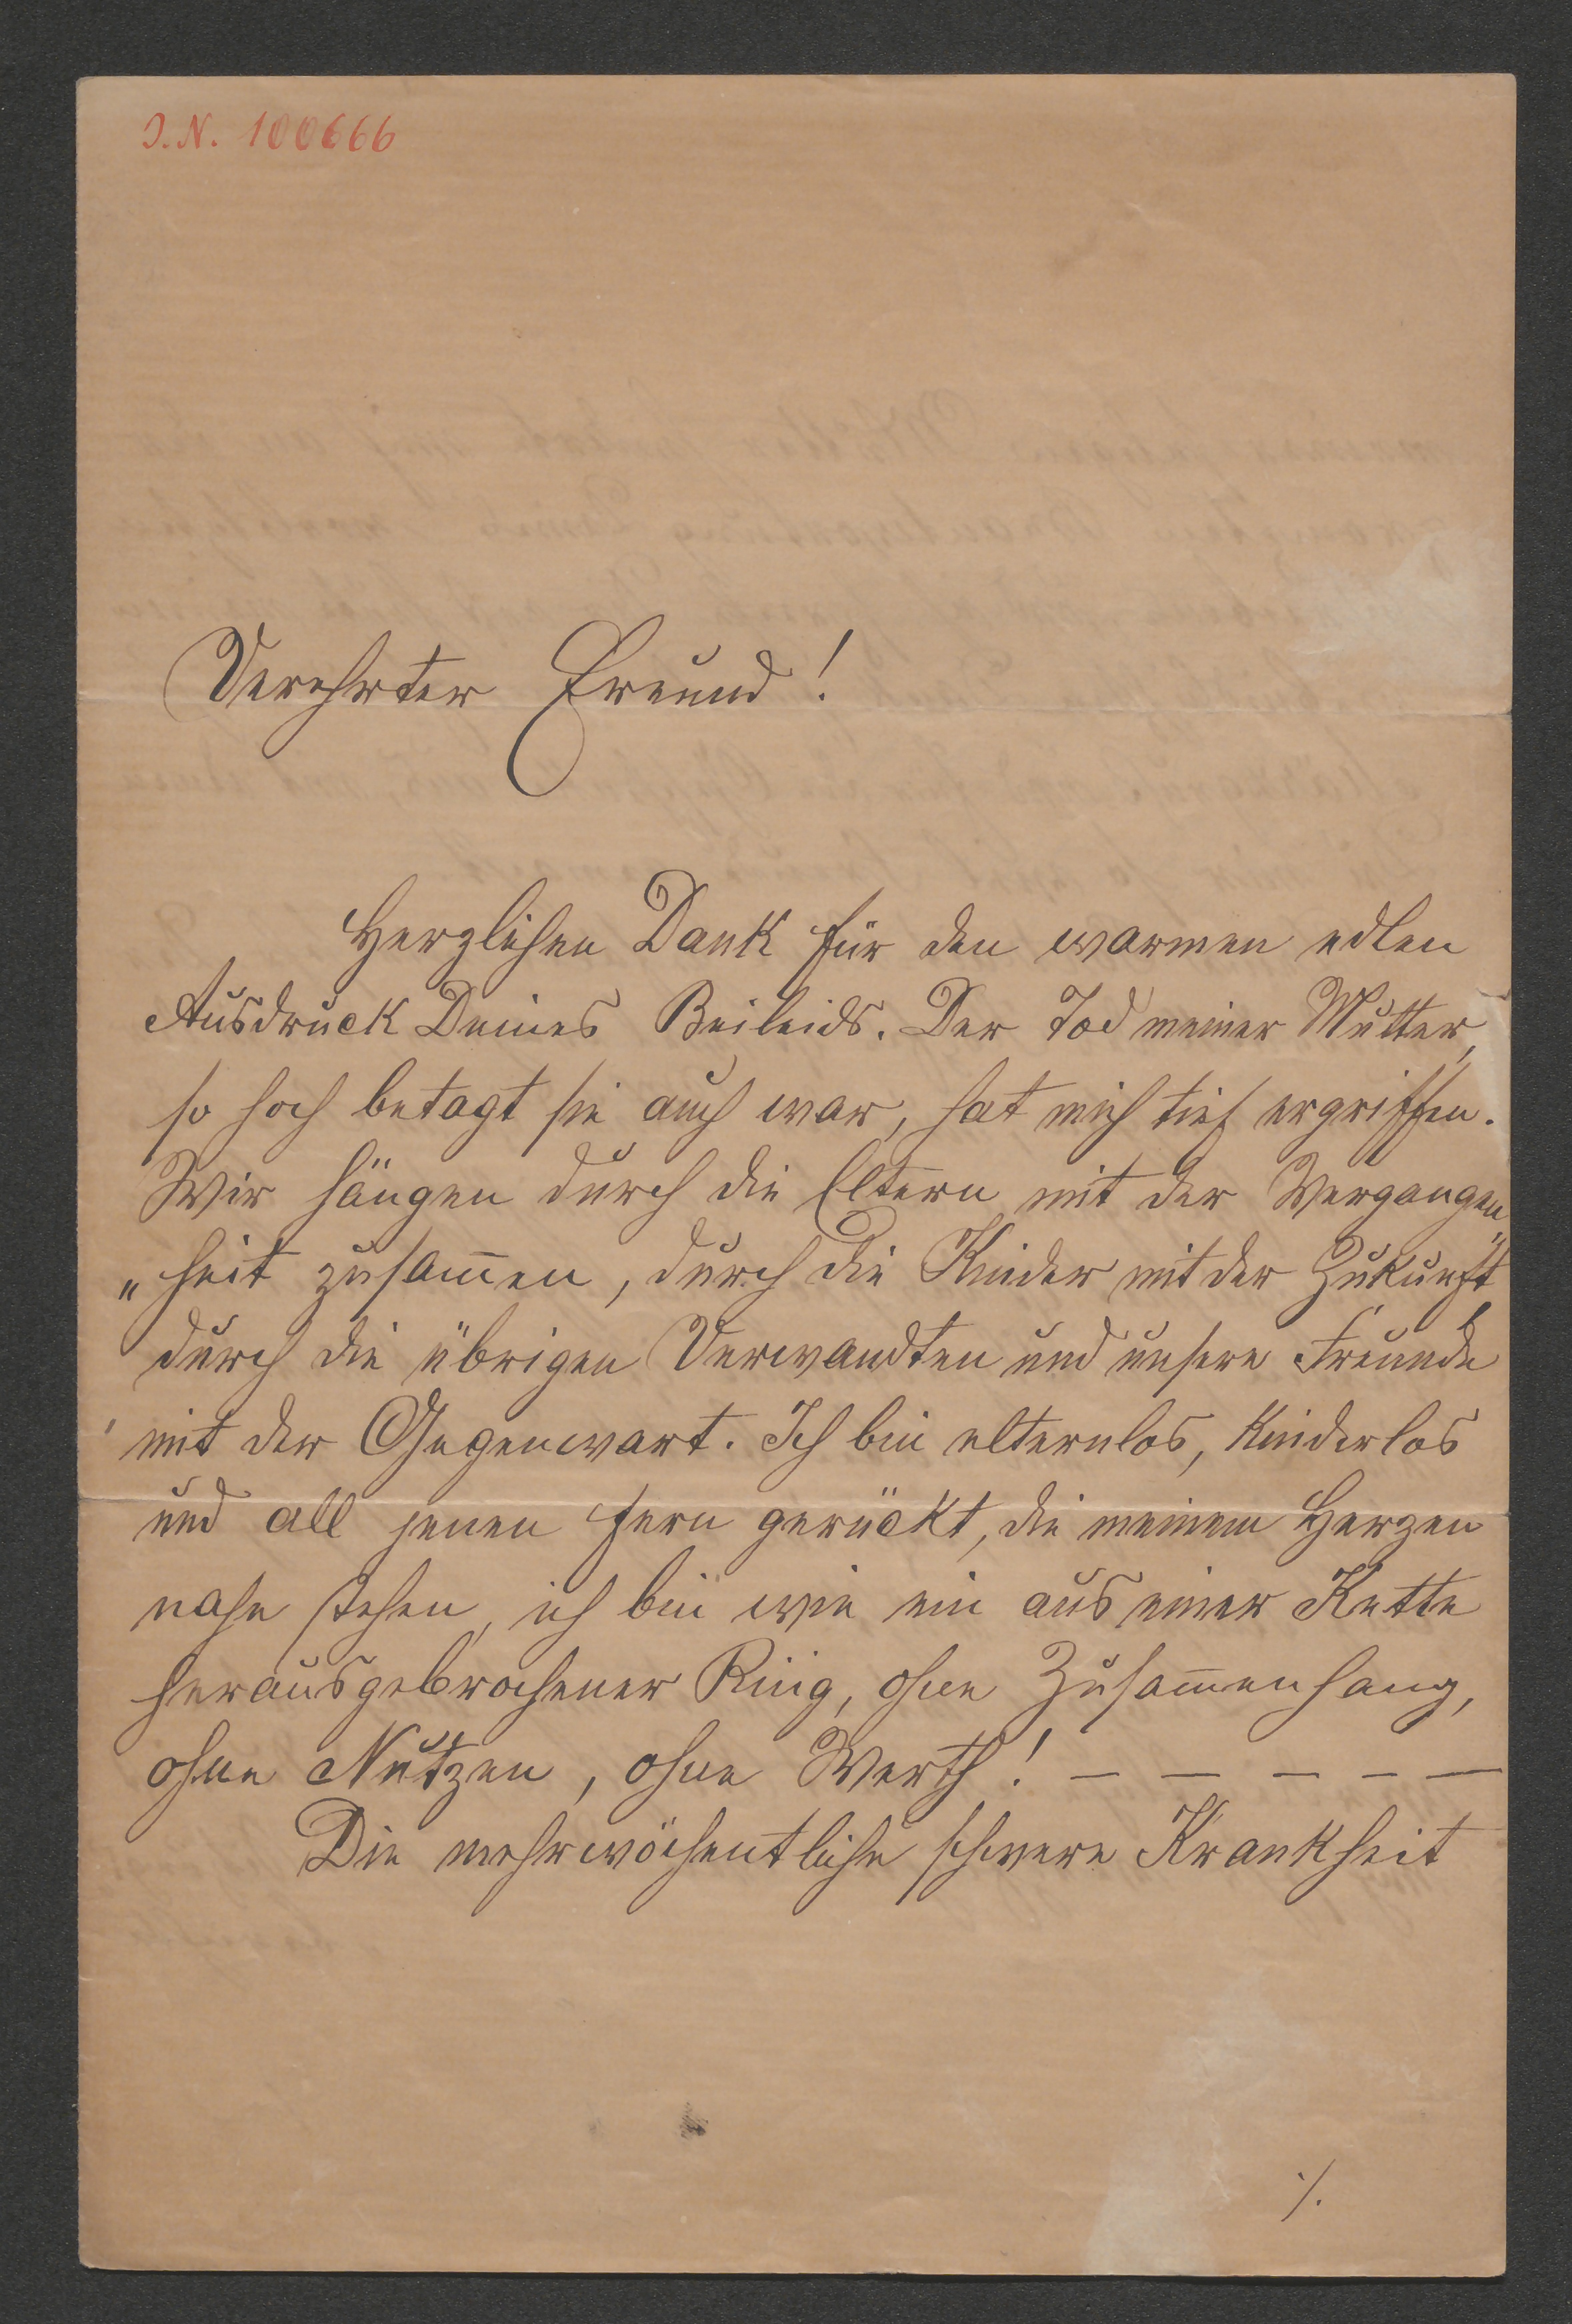 J.N. 100666
Verehrter Freund!
Herzlichen Dank für den warmen edlen
Ausdruck Deines Beileids. Der Tod meiner Mutter,
so hoch betagt sie auch war, hat mich tief ergriffen.
Wir hängen durch die Eltern mit der Vergangen„
„heit zusam̅en, durch die Kinder mit der Zukunft,
durch die übrigen Verwandten und unsere Freunde
mit der Gegenwart. Ich bin elternlos, kinderlos
und all jenen fern gerückt, die meinem Herzen
nahe stehen, ich bin wie ein aus einer Kette
herausgebrochener Ring, ohne Zusam̅enhang,
ohne Nutzen, ohne Werth! — — — — —
Die mehrwöchentliche schwere Krankheit
./.